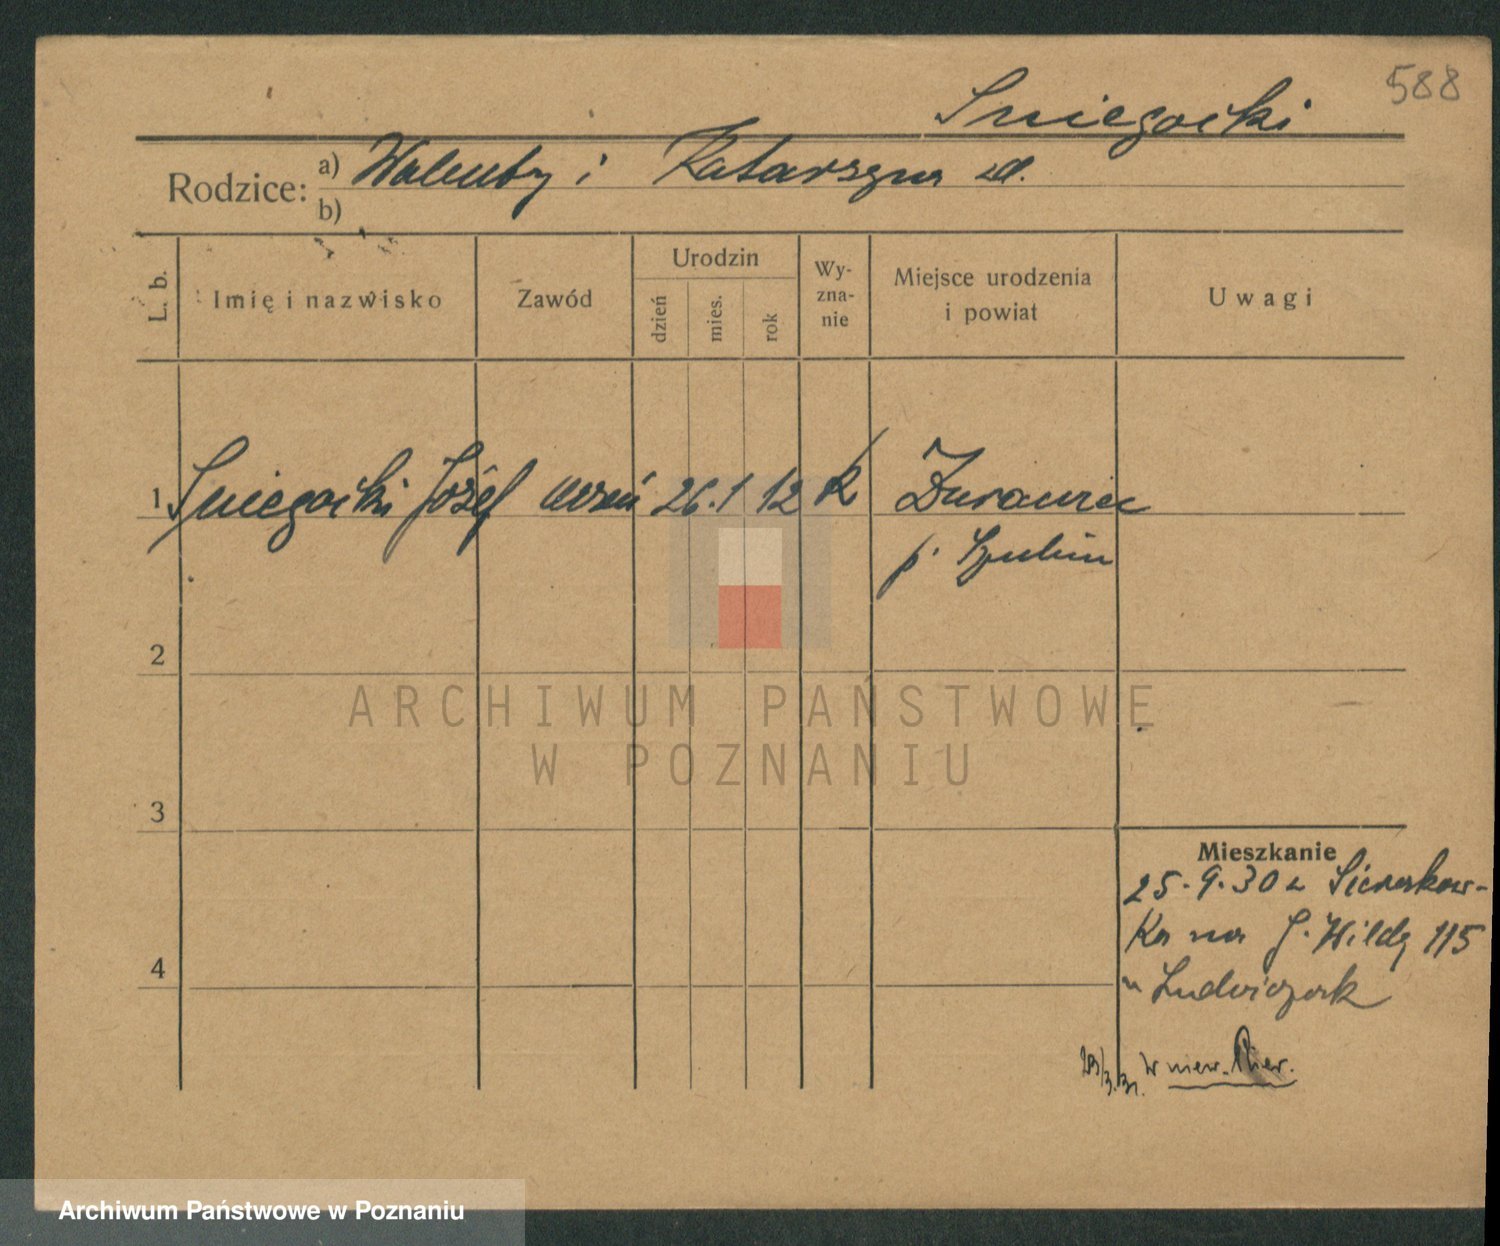 588
Sniegocki
Rodzice: a) Walenty i Katarzyna
b)
L. b.
Imię i nazwisko
Zawód
Urodzin
dzień
mies.
rok
Wy-
zna-
nie
Miejsce urodzenia
i powiat
Uwagi
1 Sniegocki Józef uczeń 26. 1 12 K
p. Szubin
2
3
4
Mieszkanie
25. 9. 30 z Sierakow-
ka na G. Wildę 115
u Ludwiczak
ARCHIWUM PAŃSTWOWE
W POZNANIU
Archiwum Państwowe w Poznaniu